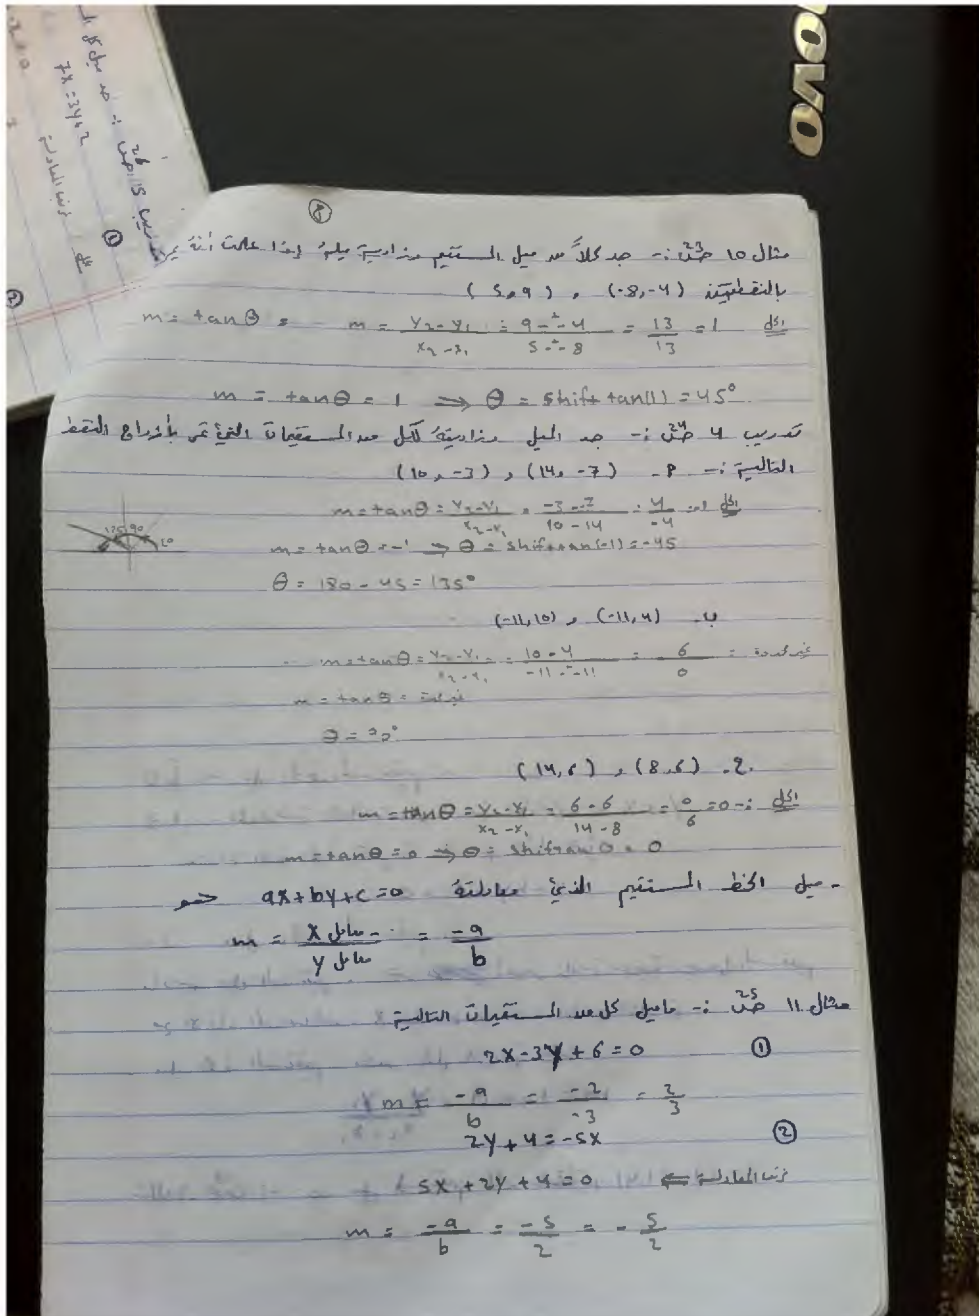 ovo
جد ميل كل
7x = 3y + 2
نرتب المعادلة
مثال 10 ص23 :- جد كلاً من ميل المستقيم وزاوية ميله إذا علمت أنه يمر
بالنقطتين (-8, -4) و (5, 9)
الحل m = tanθ = m = y2 - y1 / x2 - x1 = 9 - -4 / 5 - -8 = 13/13 = 1
m = tanθ = 1 ⇒ θ = shift tan(1) = 45°
تدريب 4 ص24 :- جد الميل وزاويته لكل من المستقيمات التي تمر بأزواج النقط
التالية :- P- (14, -7) و (10, -3)
الحل :- m = tanθ = y2 - y1 / x2 - x1 = -3 - -7 / 10 - 14 = 4/-4
m = tanθ = -1 ⇒ θ = shift tan(-1) = -45
θ = 180 - 45 = 135°
ب. (-11, 4) و (-11, 10)
m = tanθ = y2 - y1 / x2 - x1 = 10 - 4 / -11 - -11 = 6/0 = غير محددة
m = tanθ =
θ = 90°
ج. (8, 6) و (14, 6)
الحل :- m = tanθ = y2 - y1 / x2 - x1 = 6 - 6 / 14 - 8 = 0/6 = 0
m = tanθ = 0 ⇒ θ = shift tan 0 = 0
- ميل الخط المستقيم الذي معادلته ax + by + c = 0 هو
m = - معامل x / معامل y = -a/b
مثال 11 ص25 :- ما ميل كل من المستقيمات التالية
① 2x - 3y + 6 = 0
m = -a/b = -2/-3 = 2/3
② 2y + 4 = -5x
نرتب المعادلة ⇐ 5x + 2y + 4 = 0
m = -a/b = -5/2 = - 5/2